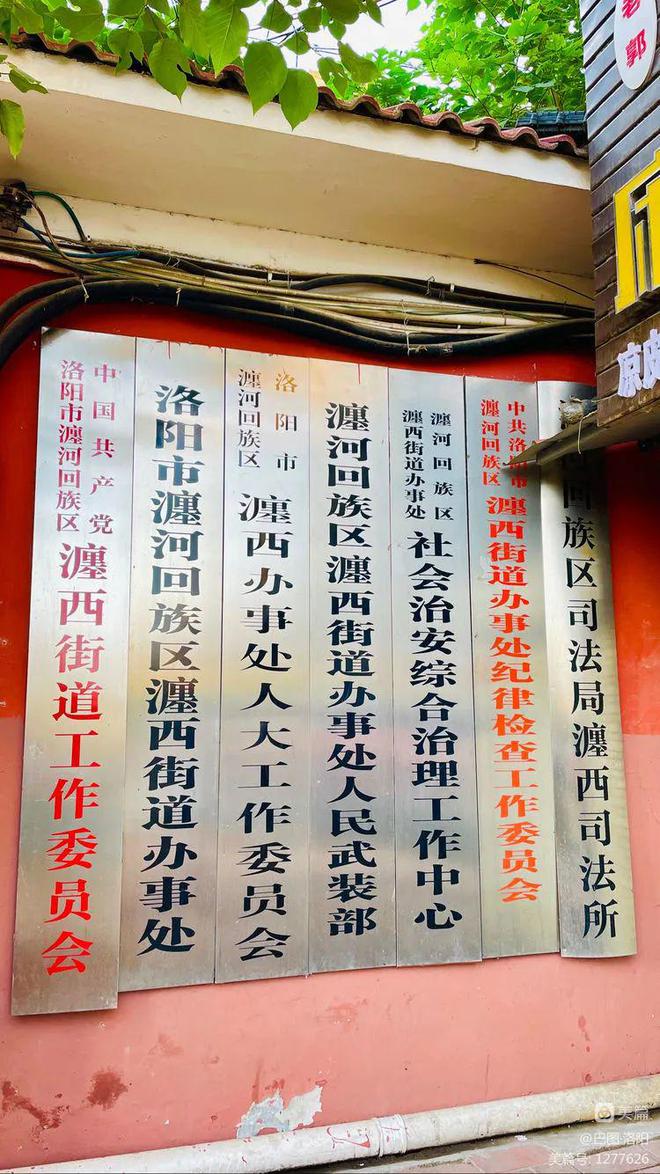 中国共产党
洛阳市瀍河回族区
瀍西街道工作委员会
洛阳市瀍河回族区瀍西街道办事处
洛阳市
瀍河回族区
瀍西办事处人大工作委员会
瀍河回族区瀍西街道办事处人民武装部
瀍河回族区
瀍西街道办事处
社会治安综合治理工作中心
中共洛阳市
瀍河回族区
瀍西街道办事处纪律检查工作委员会
回族区司法局瀍西司法所
老郭
凉皮
美篇
@巴图·洛阳
美篇号: 1277626